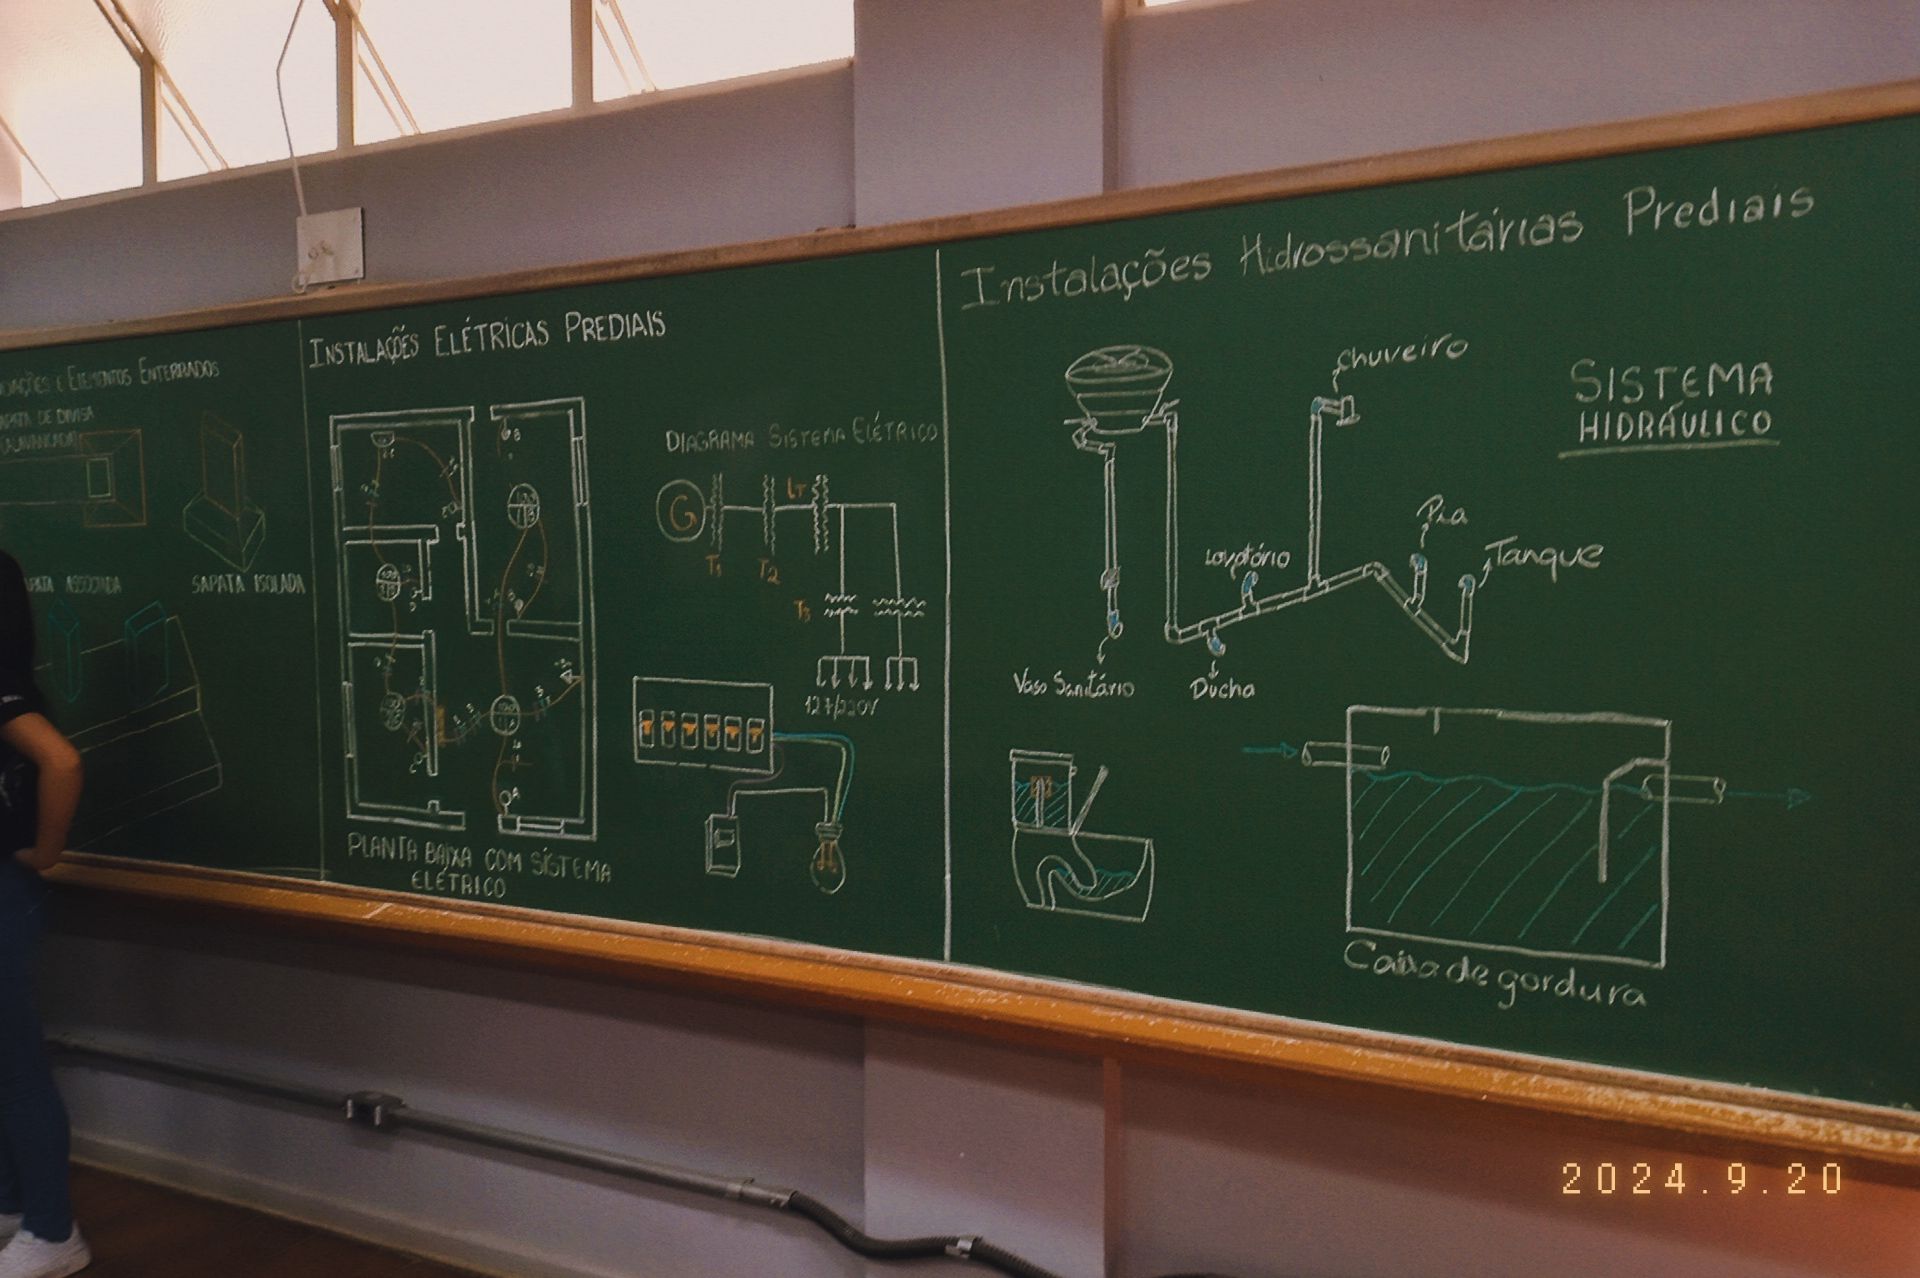 E ELEMENTOS ENTERRADOS
SAPATA DE DIVISA
SAPATA ISOLADA
INSTALAÇÕES ELÉTRICAS PREDIAIS
PLANTA BAIXA COM SISTEMA
ELÉTRICO
DIAGRAMA SISTEMA ELÉTRICO
G
LT
T1
T2
T3
127/220V
Instalações Hidrossanitárias Prediais
SISTEMA
HIDRÁULICO
Chuveiro
Pia
Tanque
Lavatório
Vaso Sanitário
Ducha
Caixa de gordura
2024.9.20